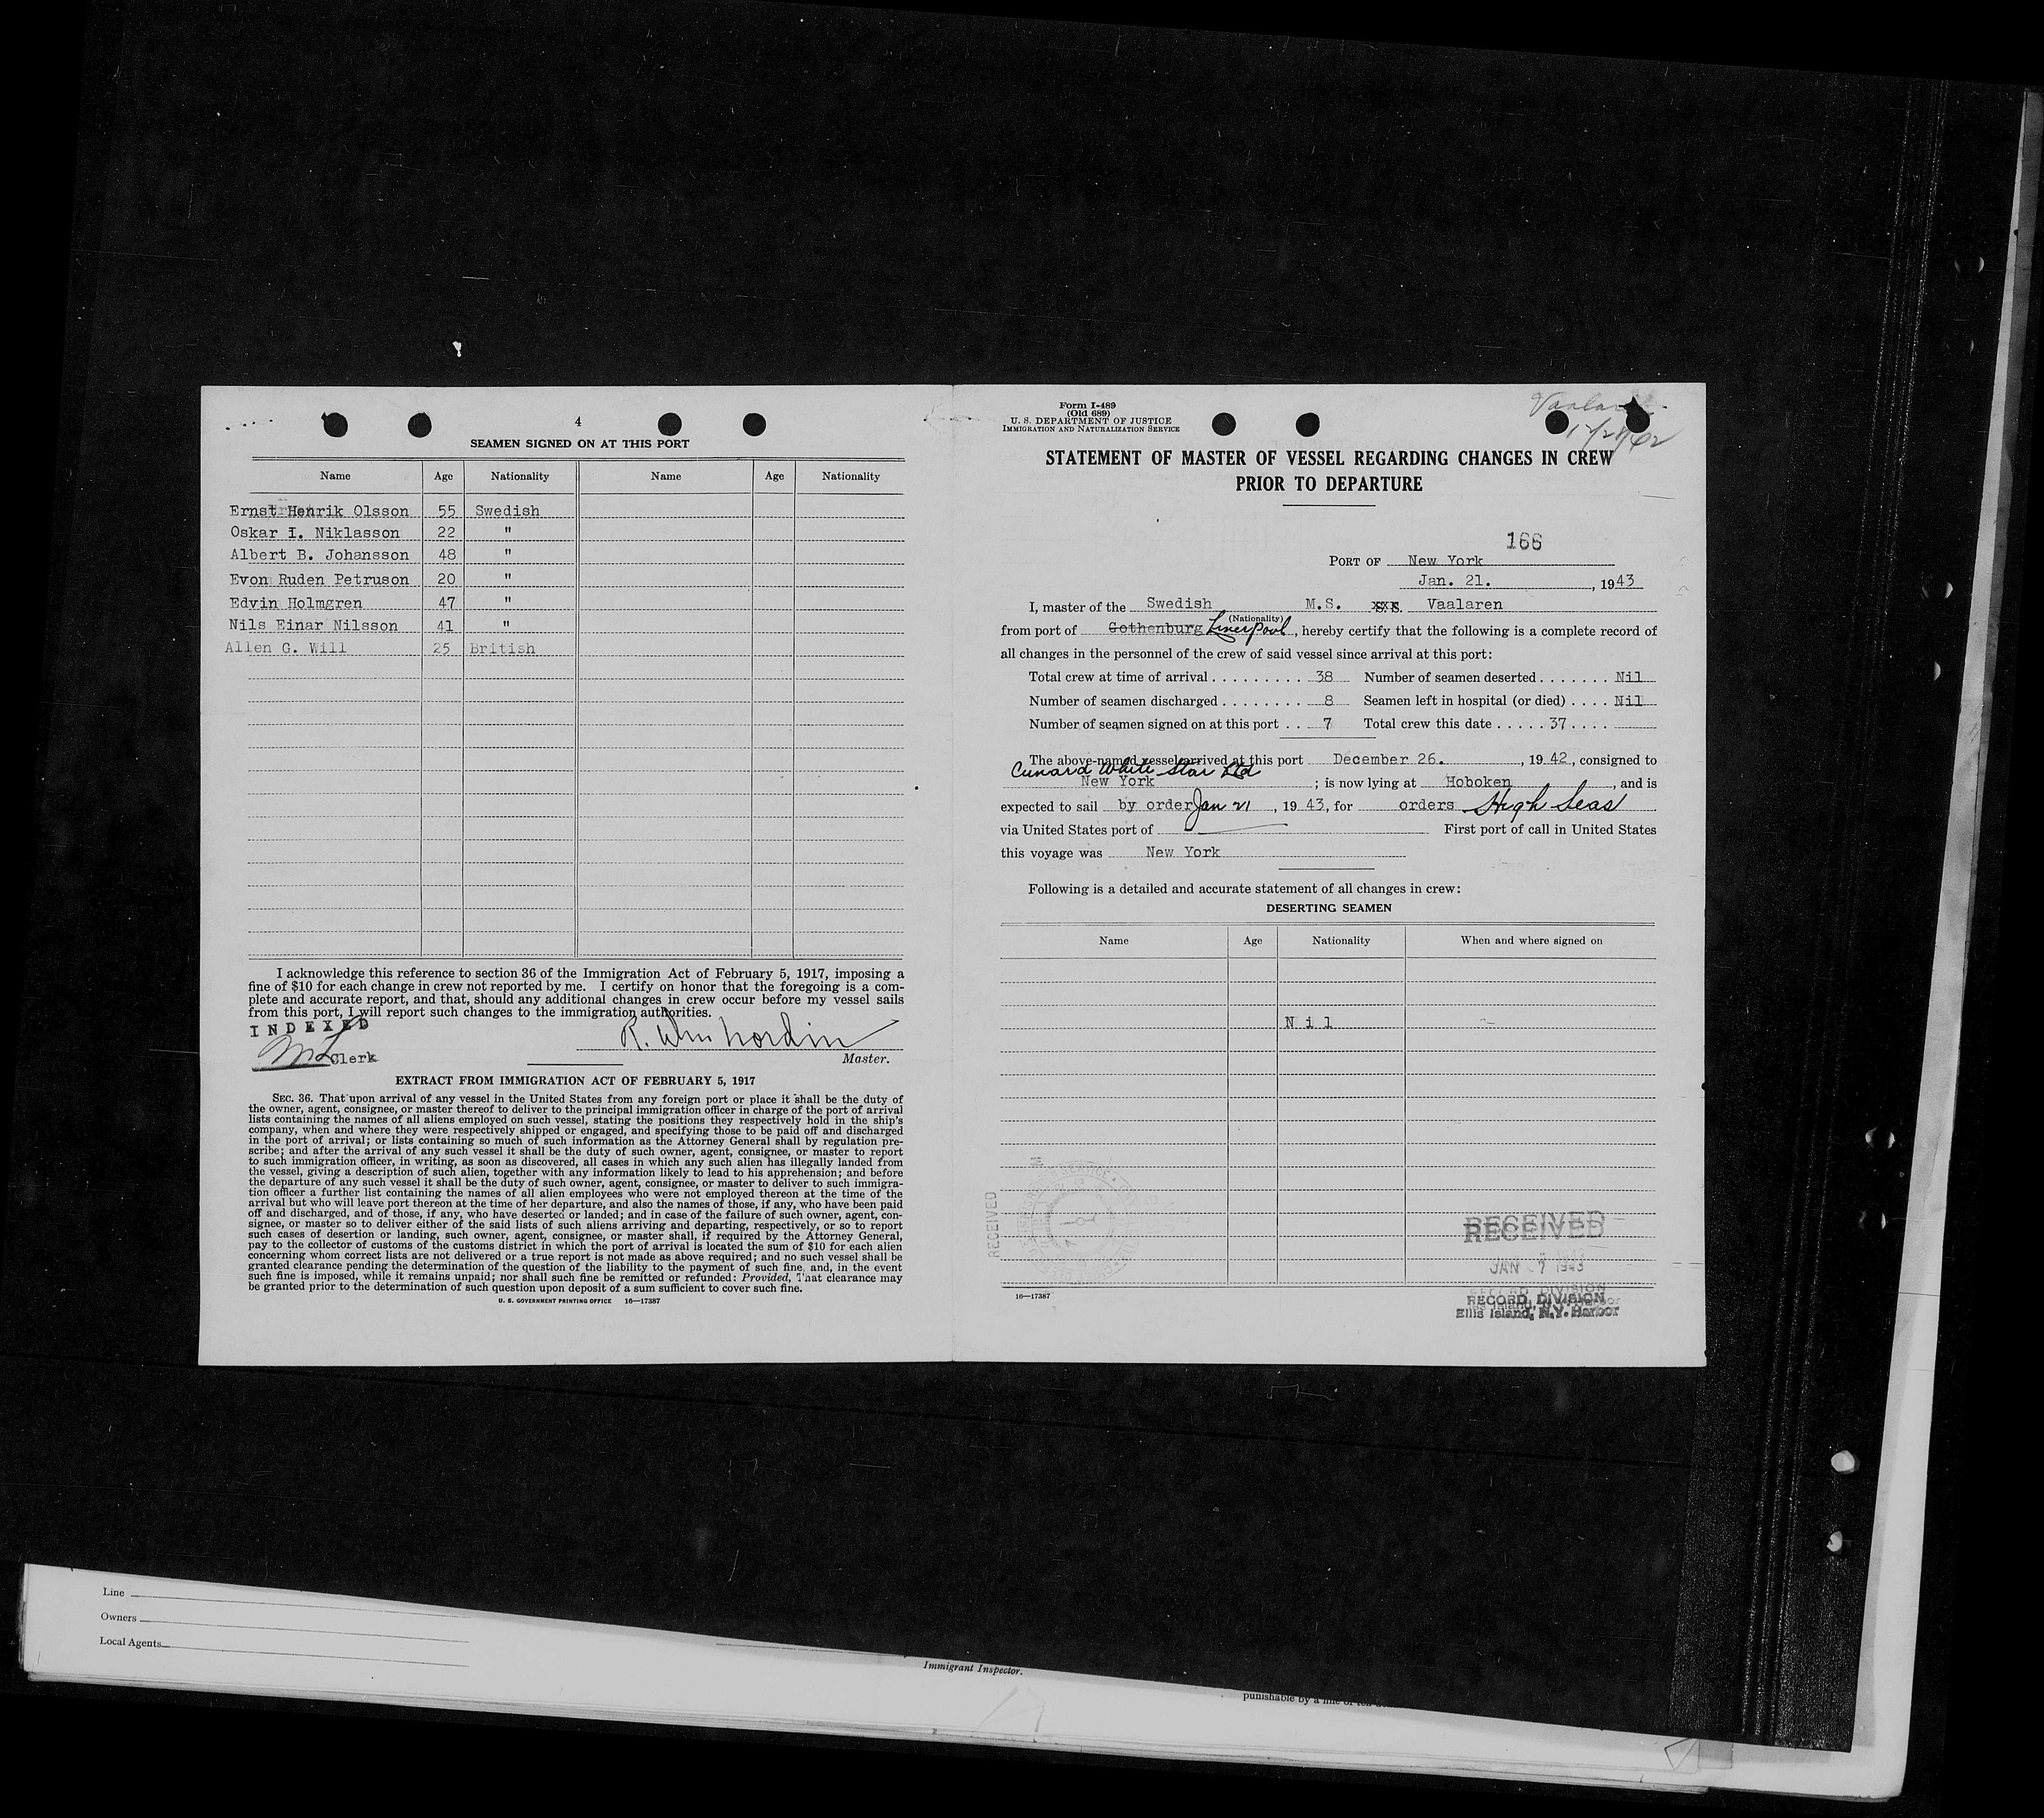 4
SEAMEN SIGNED ON AT THIS PORT
Name Age Nationality Name Age Nationality
Ernst Henrik Olsson 55 Swedish
Oskar I. Niklasson 22 "
Albert B. Johansson 48 "
Evon Ruden Petruson 20 "
Edvin Holmgren 47 "
Nils Einar Nilsson 41 "
Allen G. Will 25 British
I acknowledge this reference to section 36 of the Immigration Act of February 5, 1917, imposing a
fine of $10 for each change in crew not reported by me. I certify on honor that the foregoing is a com-
plete and accurate report, and that, should any additional changes in crew occur before my vessel sails
from this port, I will report such changes to the immigration authorities.
INDEXED
Clerk
Master.
EXTRACT FROM IMMIGRATION ACT OF FEBRUARY 5, 1917
SEC. 36. That upon arrival of any vessel in the United States from any foreign port or place it shall be the duty of
the owner, agent, consignee, or master thereof to deliver to the principal immigration officer in charge of the port of arrival
lists containing the names of all aliens employed on such vessel, stating the positions they respectively hold in the ship's
company, when and where they were respectively shipped or engaged, and specifying those to be paid off and discharged
in the port of arrival; or lists containing so much of such information as the Attorney General shall by regulation pre-
scribe; and after the arrival of any such vessel it shall be the duty of such owner, agent, consignee, or master to report
to such immigration officer, in writing, as soon as discovered, all cases in which any such alien has illegally landed from
the vessel, giving a description of such alien, together with any information likely to lead to his apprehension; and before
the departure of any such vessel it shall be the duty of such owner, agent, consignee, or master to deliver to such immigra-
tion officer a further list containing the names of all alien employees who were not employed thereon at the time of the
arrival but who will leave port thereon at the time of her departure, and also the names of those, if any, who have been paid
off and discharged, and of those, if any, who have deserted or landed; and in case of the failure of such owner, agent, con-
signee, or master so to deliver either of the said lists of such aliens arriving and departing, respectively, or so to report
such cases of desertion or landing, such owner, agent, consignee, or master shall, if required by the Attorney General,
pay to the collector of customs of the customs district in which the port of arrival is located the sum of $10 for each alien
concerning whom correct lists are not delivered or a true report is not made as above required; and no such vessel shall be
granted clearance pending the determination of the question of the liability to the payment of such fine, and, in the event
such fine is imposed, while it remains unpaid; nor shall such fine be remitted or refunded: Provided, That clearance may
be granted prior to the determination of such question upon deposit of a sum sufficient to cover such fine.
U. S. GOVERNMENT PRINTING OFFICE 16—17387
Form I-489
(Old 689)
U. S. DEPARTMENT OF JUSTICE
IMMIGRATION AND NATURALIZATION SERVICE
STATEMENT OF MASTER OF VESSEL REGARDING CHANGES IN CREW
PRIOR TO DEPARTURE
166
PORT OF New York
Jan. 21. , 1943
I, master of the Swedish M.S. Vaalaren
(Nationality)
from port of Gothenburg Liverpool, hereby certify that the following is a complete record of
all changes in the personnel of the crew of said vessel since arrival at this port:
Total crew at time of arrival 38 Number of seamen deserted Nil
Number of seamen discharged 8 Seamen left in hospital (or died) Nil
Number of seamen signed on at this port 7 Total crew this date 37
The above-named vessel arrived at this port December 26. , 1942, consigned to
Cunard White Star Ltd
New York ; is now lying at Hoboken , and is
expected to sail by order Jan 21 , 1943, for orders High Seas
via United States port of First port of call in United States
this voyage was New York
Following is a detailed and accurate statement of all changes in crew:
DESERTING SEAMEN
Name Age Nationality When and where signed on
Nil
RECEIVED
RECEIVED
JAN 7 1943
RECORD DIVISION
Ellis Island, N.Y. Harbor
16—17387
Line
Owners
Local Agents
Immigrant Inspector.
punishable by a fine of